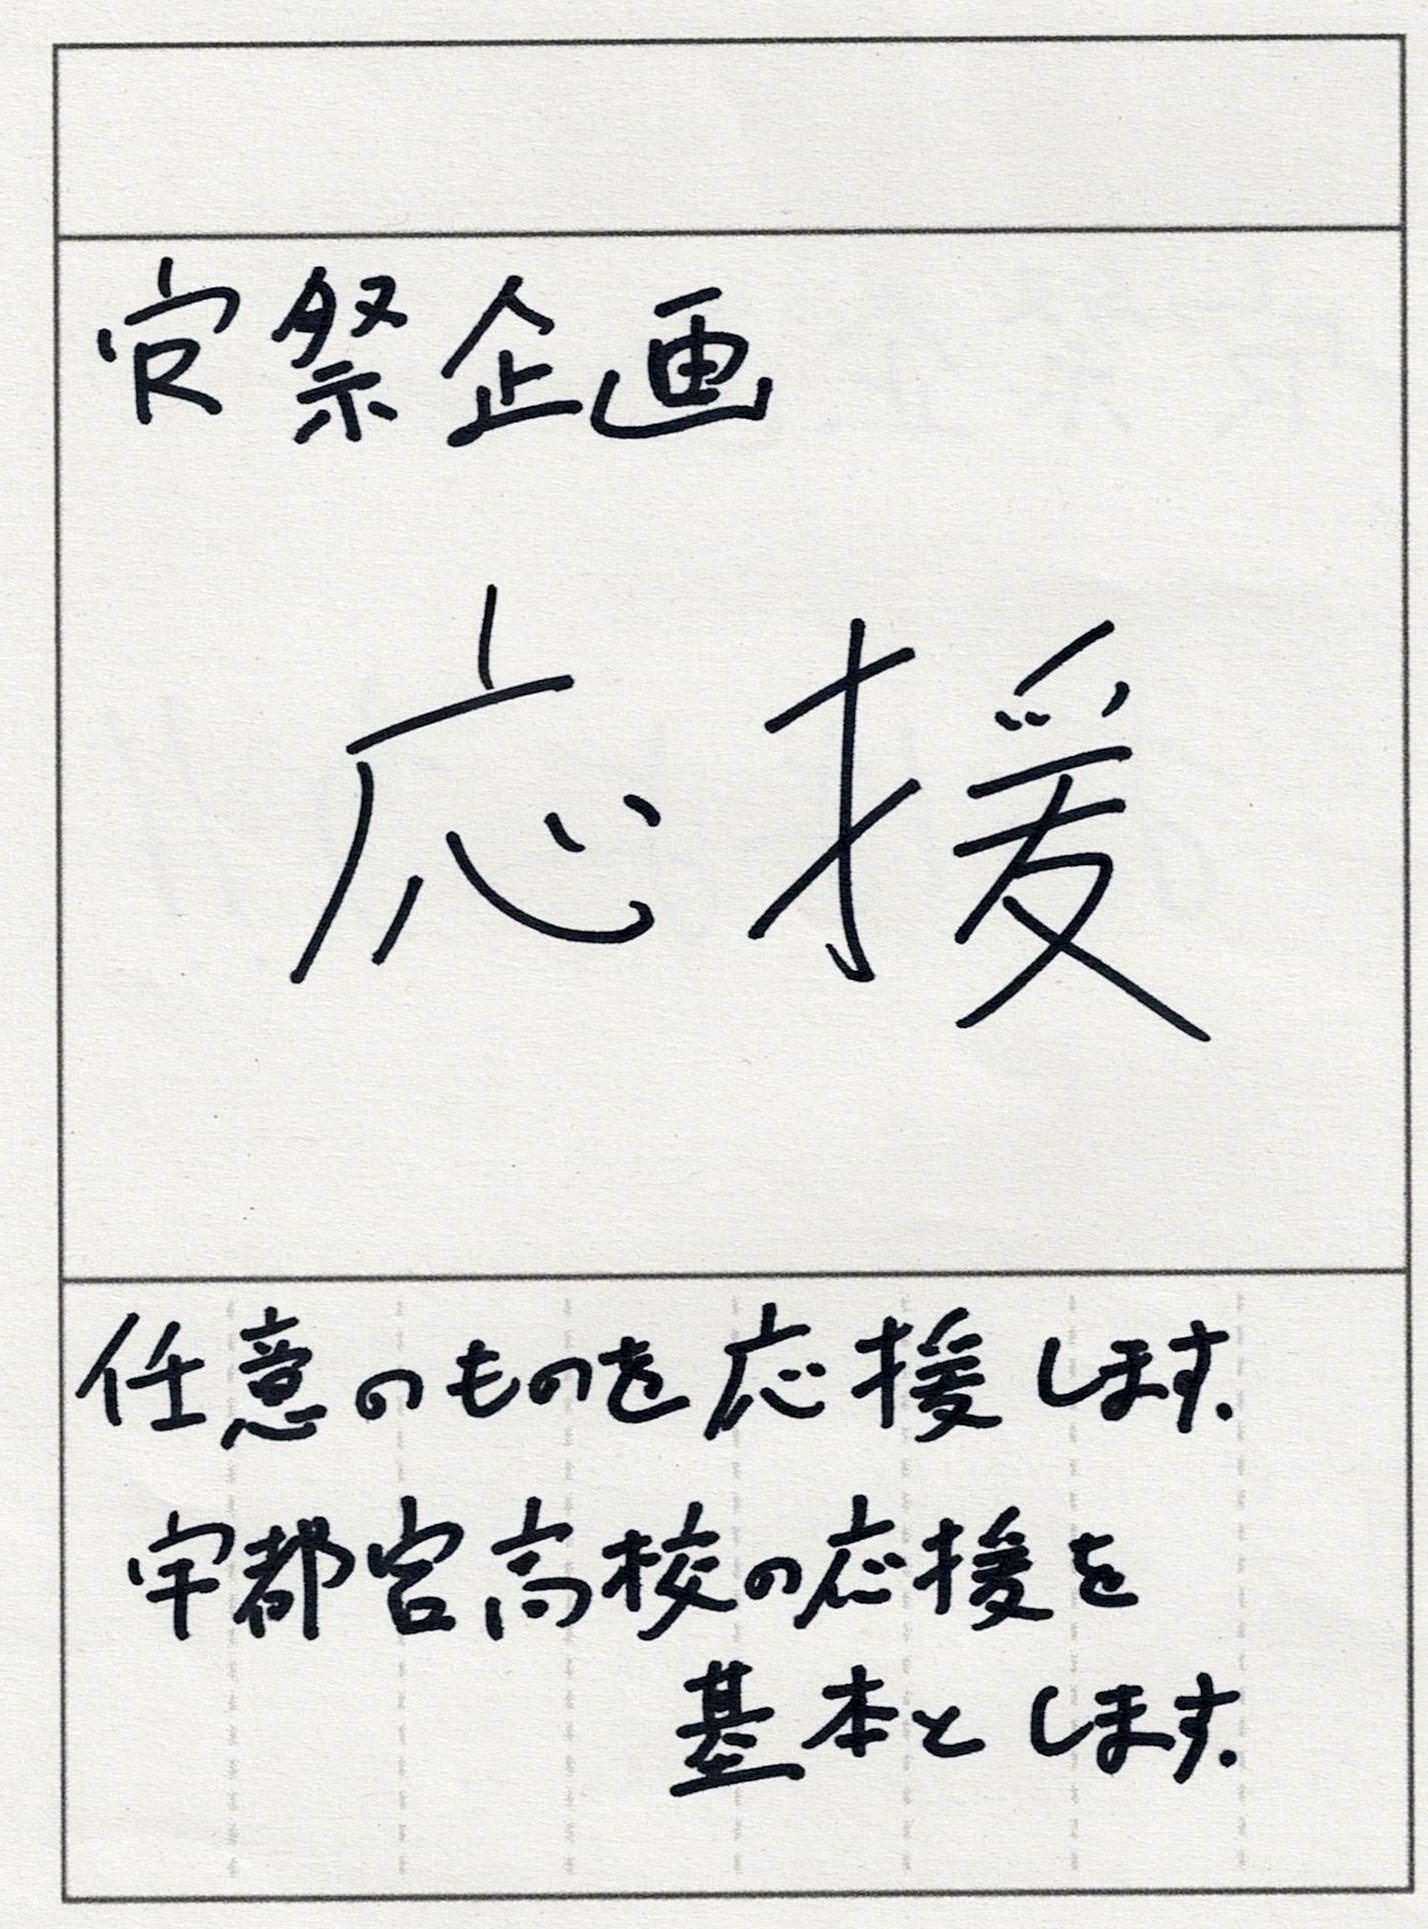 寮祭企画
応援
任意のものを応援します.
宇都宮高校の応援を
基本とします.